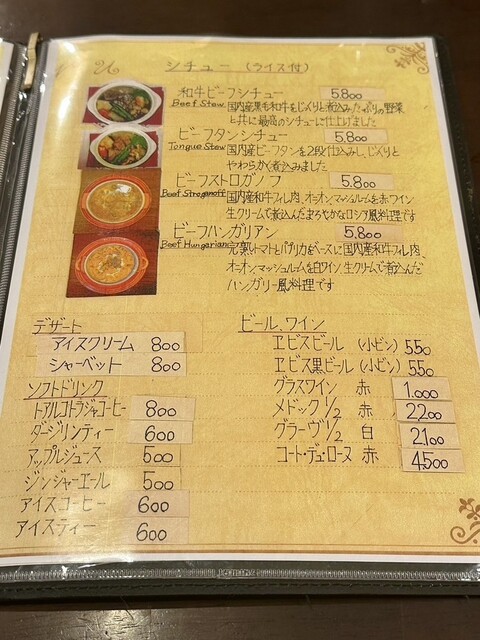 シチュー (ライス付)
和牛ビーフシチュー 5.800
Beef Stew 国内産黒毛和牛をじっくりと煮込みたっぷりの野菜
と共に最高のシチューに仕上げました
ビーフタンシチュー 5.800
Tongue Stew 国内産ビーフタンを2段仕込みし、じっくりと
やわらかく煮込みました
ビーフストロガノフ 5.800
Beef Stroganoff 国内産和牛フィレ肉、オニオン、マッシュルームを赤ワイン
生クリームで煮込んだまろやかなロシア風料理です
ビーフハンガリアン 5.800
Beef Hungarian 完熟トマトとパプリカをベースに国内産和牛フィレ肉、
オニオン、マッシュルームを白ワイン生クリームで煮込んだ
ハンガリー風料理です
デザート
アイスクリーム 800
シャーベット 800
ソフトドリンク
トアルコトラジャコーヒー 800
ダージリンティー 600
アップルジュース 500
ジンジャーエール 500
アイスコーヒー 600
アイスティー 600
ビール、ワイン
ヱビスビール (小ビン) 550
ヱビス黒ビール (小ビン) 550
グラスワイン 赤 1.000
メドック 1/2 赤 2200
グラーヴ 1/2 白 2100
コート・デュ・ローヌ 赤 4500